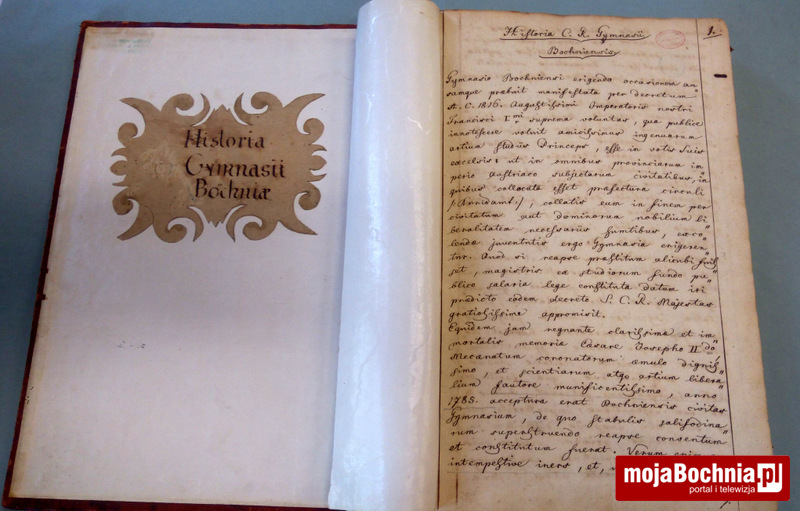 Historia
Gymnasii
Bochniæ
Historia C. R. Gymnasii
Bochniensis
1.
Gymnasio Bochniensi erigendo occasionem an
samque præbuit manifestata per decretum
A. C. 1816. Augustissimi Imperatoris nostri
Francisci I.mi suprema voluntas, qua publice
innotescere voluit amicissimus ingenuarum
artium studiis Princeps, esse in votis suis
excelsis: ut in omnibus provinciarum im
perio austriaco subjectarum civitatibus, in
quibus collocata esset præfectura circuli
, collatis eum in finem per
civitatum aut Dominorum nobilium li
beralitatem necessariis sumtibus, exco
lendæ juventutis ergo Gymnasia erigeren
tur. Quod si reapse præstitum alicubi fuis
set, magistris ex studiorum fundo pu
blico salaria lege constituta datum iri
prædicto eodem decreto S. C. R. Majestas
gratiosissime appromisit.
Equidem jam regnante clarissimæ et im
mortalis memoriæ Cæsare Josepho II.do
Mecænatum coronatorum æmulo dignis
simo, et scientiarum atqe artium libera
lium fautore munificentissimo, anno
1785. acceptura erat Bochniensis civitas
Gymnasium, de quo stabulis salisfodina
rum superstruendo reapse consentum
et constitutum fuerat. Verum enim
intempestive iners, et,
mojaBochnia.pl
portal i telewizja